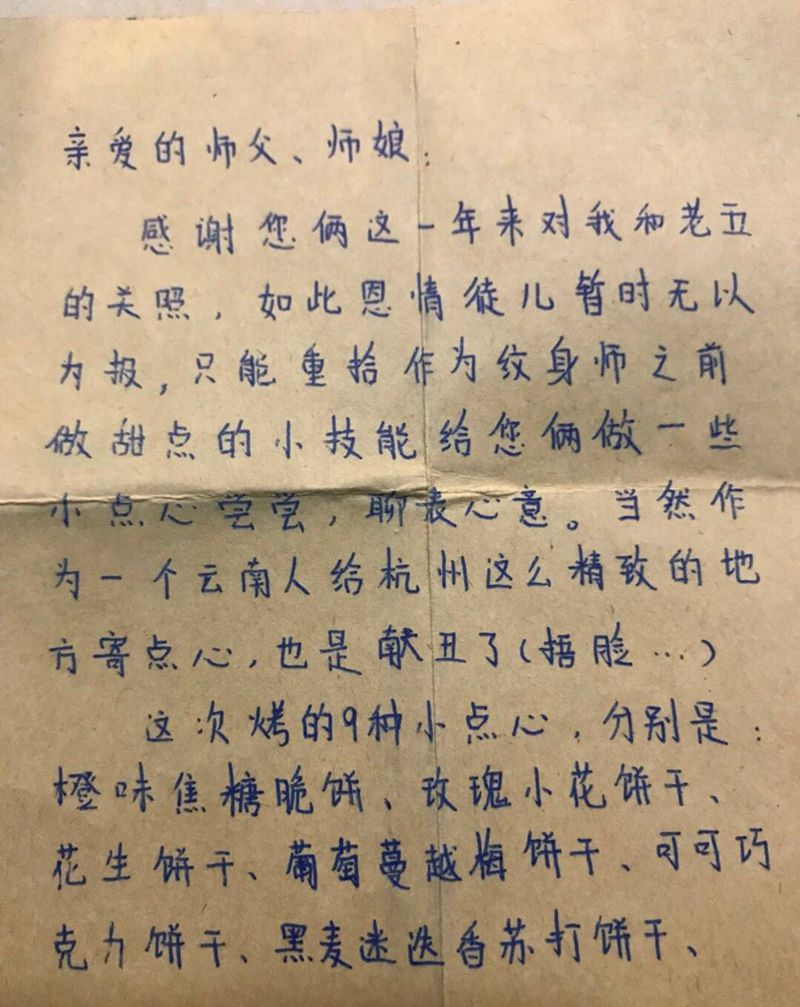 亲爱的师父、师娘：
感谢您俩这一年来对我和老五
的关照，如此恩情徒儿暂时无以
为报，只能重拾作为纹身师之前
做甜点的小技能给您俩做一些
小点心尝尝，聊表心意。当然作
为一个云南人给杭州这么精致的地
方寄点心，也是献丑了(捂脸…)
这次烤的9种小点心，分别是：
橙味焦糖脆饼、玫瑰小花饼干、
花生饼干、葡萄蔓越梅饼干、可可巧
克力饼干、黑麦迷迭香苏打饼干、